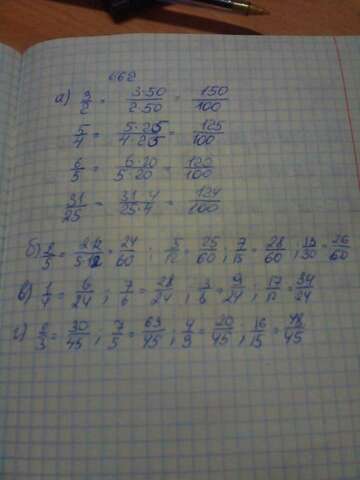 662
а) 3/2 = 3·50/2·50 = 150/100
5/4 = 5·25/4·25 = 125/100
6/5 = 6·20/5·20 = 120/100
31/25 = 31·4/25·4 = 124/100
б) 2/5 = 2·12/5·12 = 24/60 ; 5/12 = 25/60 ; 7/15 = 28/60 ; 13/30 = 26/60
в) 1/4 = 6/24 ; 7/6 = 28/24 ; 3/8 = 9/24 ; 17/12 = 34/24
г) 2/3 = 30/45 ; 7/5 = 63/45 ; 4/9 = 20/45 ; 16/15 = 48/45